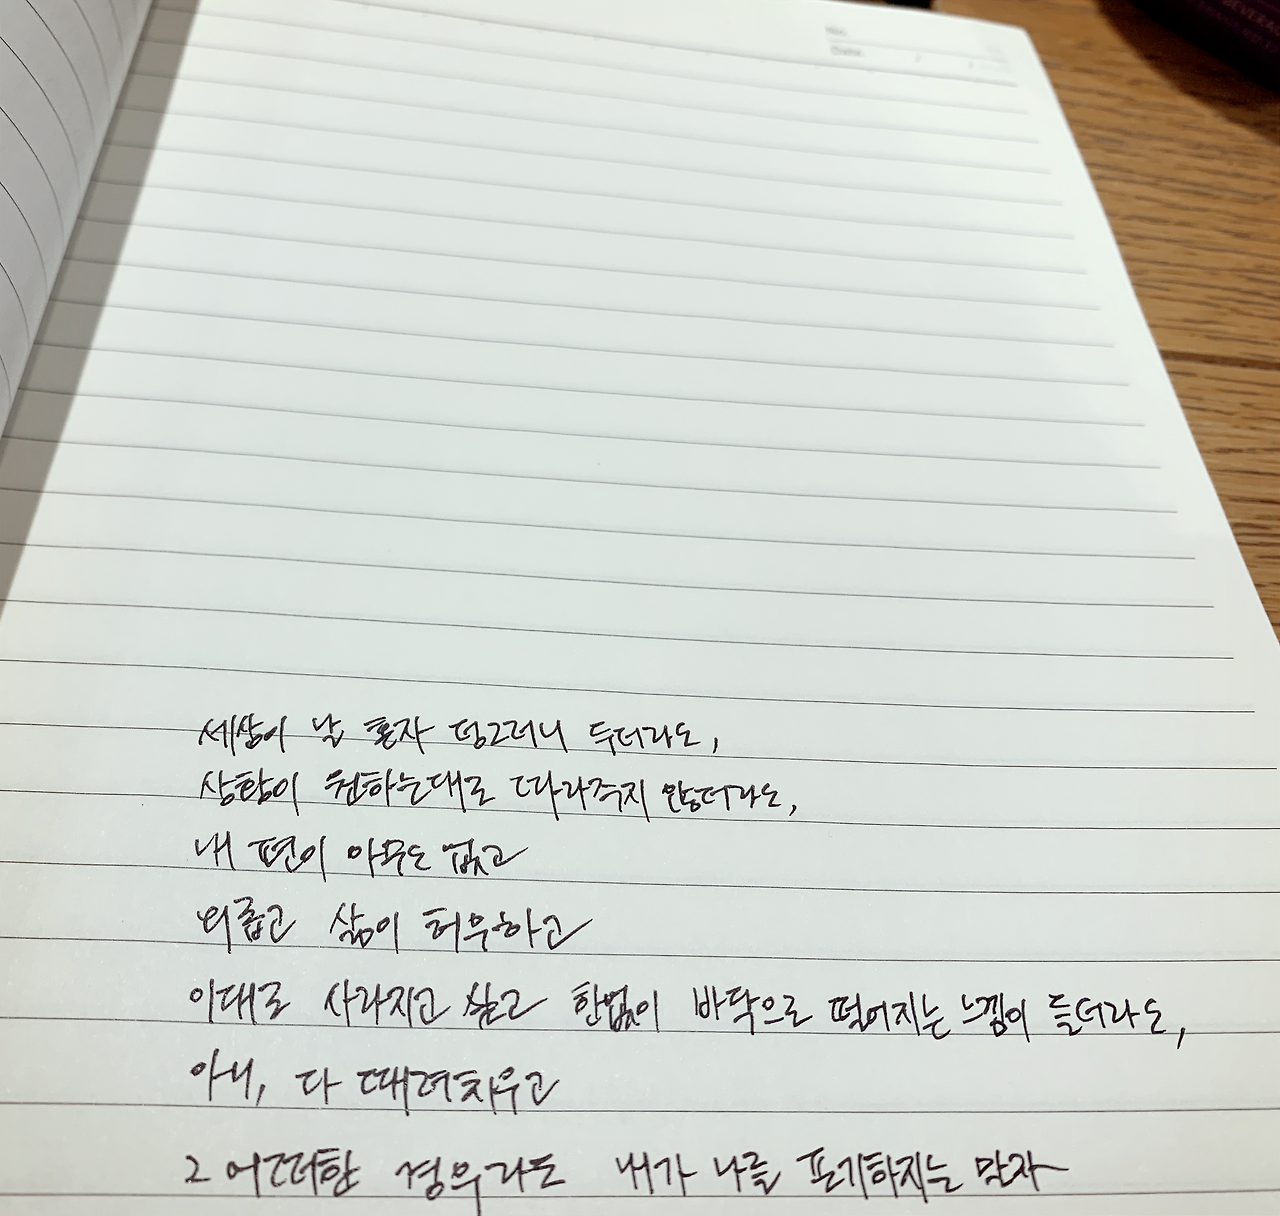 No.
Date
BEVERA
세상이 날 혼자 덩그러니 두더라도,
상황이 원하는대로 따라주지 않더라도,
내 편이 아무도 없고
외롭고 삶이 허무하고
이대로 사라지고 싶고 한없이 바닥으로 떨어지는 느낌이 들더라도,
아니, 다 때려치우고
그 어떠한 경우라도 내가 나를 포기하지는 말자